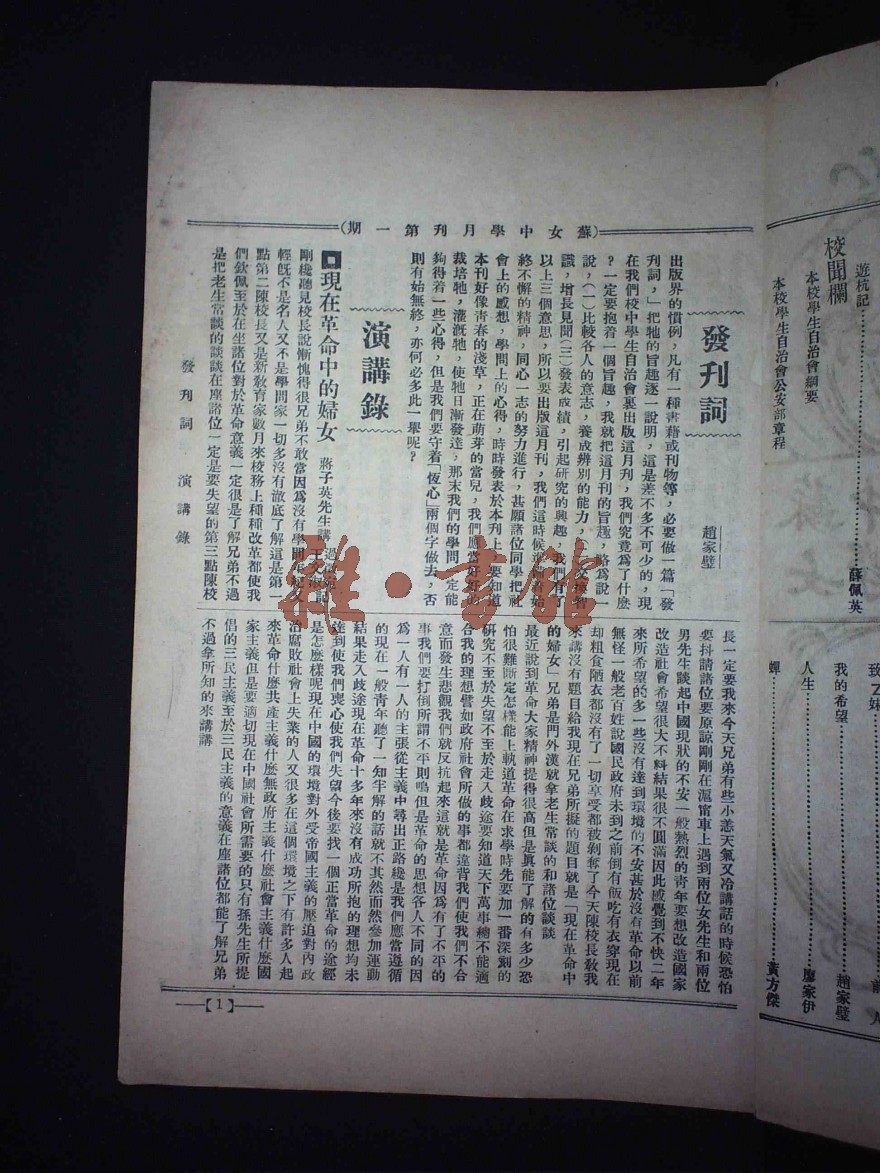 期一第刊月學中女蘇
發刊詞
趙家璧
出版界的慣例，凡有一種書藉或刊物等，必要做一篇「發
刊詞，」把牠的旨趣逐一說明，這是差不多不可少的，現
在我們校中學生自治會裏出版這月刊，我們究竟爲了什麼
？一定要抱着一個旨趣，我就把這月刊的旨趣，略爲說一
說，（一）比較各人的意志，養成辨別的能力，（二）交換智
識，增長見聞（三）發表成績，引起研究的興趣，我們有了
以上三個意思，所以要出版這月刊，我們這時候準備着始
終不懈的精神，同心一志的努力進行，甚願諸位同學把社
會上的感想，學問上的心得，時時發表於本刊上，要知道
本刊好像靑春的淺草，正在萌芽的當兒，我們應當好好的
栽培牠，灌漑牠，使牠日漸發達，那末我們的學問一定能
夠得着一些心得，但是我們要守着「恆心」兩個字做去，否
則有始無終，亦何必多此一舉呢？
演講錄
現在革命中的婦女
蔣子英先生講
王文淑記
剛纔聽見校長說慚愧得很兄弟不敢當因爲沒有學問年紀又
輕旣不是名人又不是學問家一切多沒有澈底了解這是第一
點第二陳校長又是新敎育家數月來校務上種種改革都使我
們欽佩至於在坐諸位對於革命意義一定很是了解兄弟不過
是把老生常談的談談在座諸位一定是要失望的第三點陳校
長一定要我來今天兄弟有些小恙天氣又冷講話的時候恐怕
要抖請諸位要原諒剛剛在滬甯車上遇到兩位女先生和兩位
男先生談起中國現狀的不安一般熱烈的靑年要想改造國家
改造社會希望很大不料結果很不圓滿因此感覺到不快二年
來所希望的多一些沒有達到環境的不安甚於沒有革命以前
無怪一般老百姓說國民政府未到之前倒有飯吃有衣穿現在
却粗食陋衣都沒有了一切享受都被剝奪了今天陳校長敎我
來講沒有題目給我現在兄弟所擬的題目就是「現在革命中
的婦女」兄弟是門外漢就拿老生常談的和諸位談談
最近說到革命大家精神提得很高但是眞能了解的有多少恐
怕很難斷定怎樣能上軌道革命在求學時先要加一番深刻的
研究不至於失望不至於走入歧途要知道天下萬事總不能適
合我的理想譬如政府社會所做的事都違背我們使我們不合
意而發生悲觀我們就反抗起來這就是革命因爲有了不平的
事我們要打倒所謂不平則鳴但是革命的思想各人不同的因
爲一人有一人的主張從主義中尋出正路纔是我們應當遵循
的現在一般靑年聽了一知半解的話就不其然而然參加運動
結果走入歧途現在革命十多年來沒有成功所抱的理想均未
達到使我們喪心使我們失望今後要找一個正當革命的途經
是怎麼樣呢現在中國的環境對外受帝國主義的壓迫對內政
治腐敗社會上失業的人又很多在這個環境之下有許多人起
來革命什麼共產主義什麼無政府主義什麼社會主義什麼國
家主義但是要適切現在中國社會所需要的只有孫先生所提
倡的三民主義至於三民主義的意義在座諸位都能了解兄弟
不過拿所知的來講講
發刊詞 演講錄
【1】
雜·書館
遊杭記 薛佩英
校聞欄
本校學生自治會綱要
本校學生自治會公安部章程
我的希望 趙家璧
人生 廖家伊
蟬 黃方傑